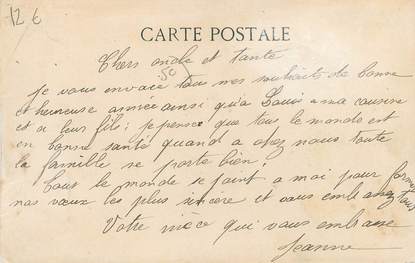 12 €
CARTE POSTALE
Chers oncle et tante
50
Je vous envoie tous mes souhaits de bonne
et heureuse année ainsi qu'a Louis a ma cousine
et a leur fils; je pense que tous le monde est
en bonne santé quand a chez nous toute
la famille se porte bien.
Tout le monde se joint a moi pour former
nos vœux les plus sincere et vous embrassez tous
Votre nièce qui vous embrasse
Jeanne